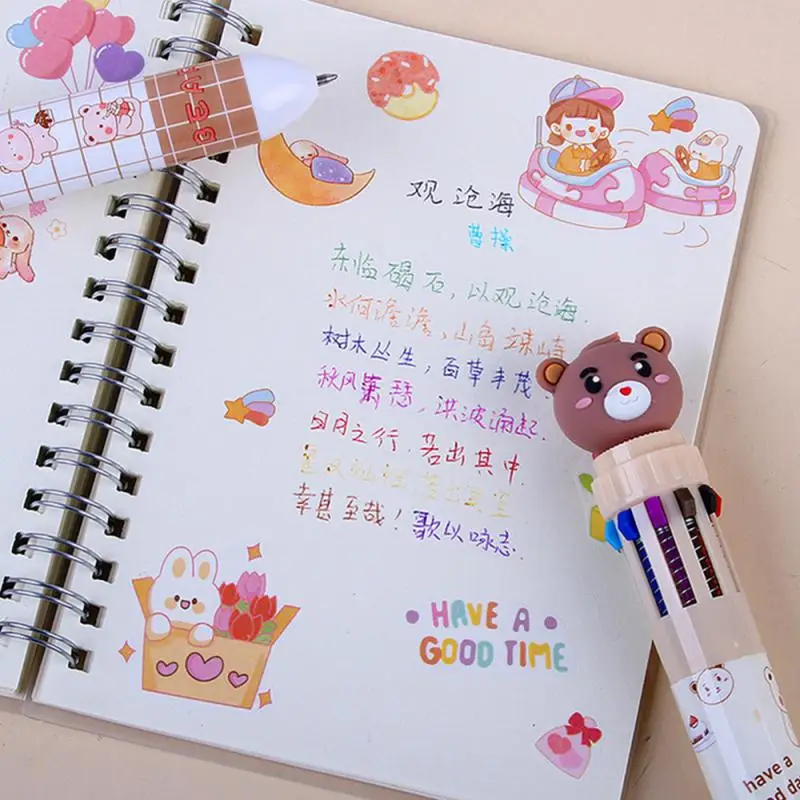 BEAR
观沧海
曹操
东临碣石，以观沧海.
水何澹澹，山岛竦峙
树木丛生，百草丰茂
秋风萧瑟，洪波涌起.
日月之行.若出其中.
星汉灿烂.若出其里.
幸甚至哉！歌以咏志.
HAVE A
GOOD TIME
have a